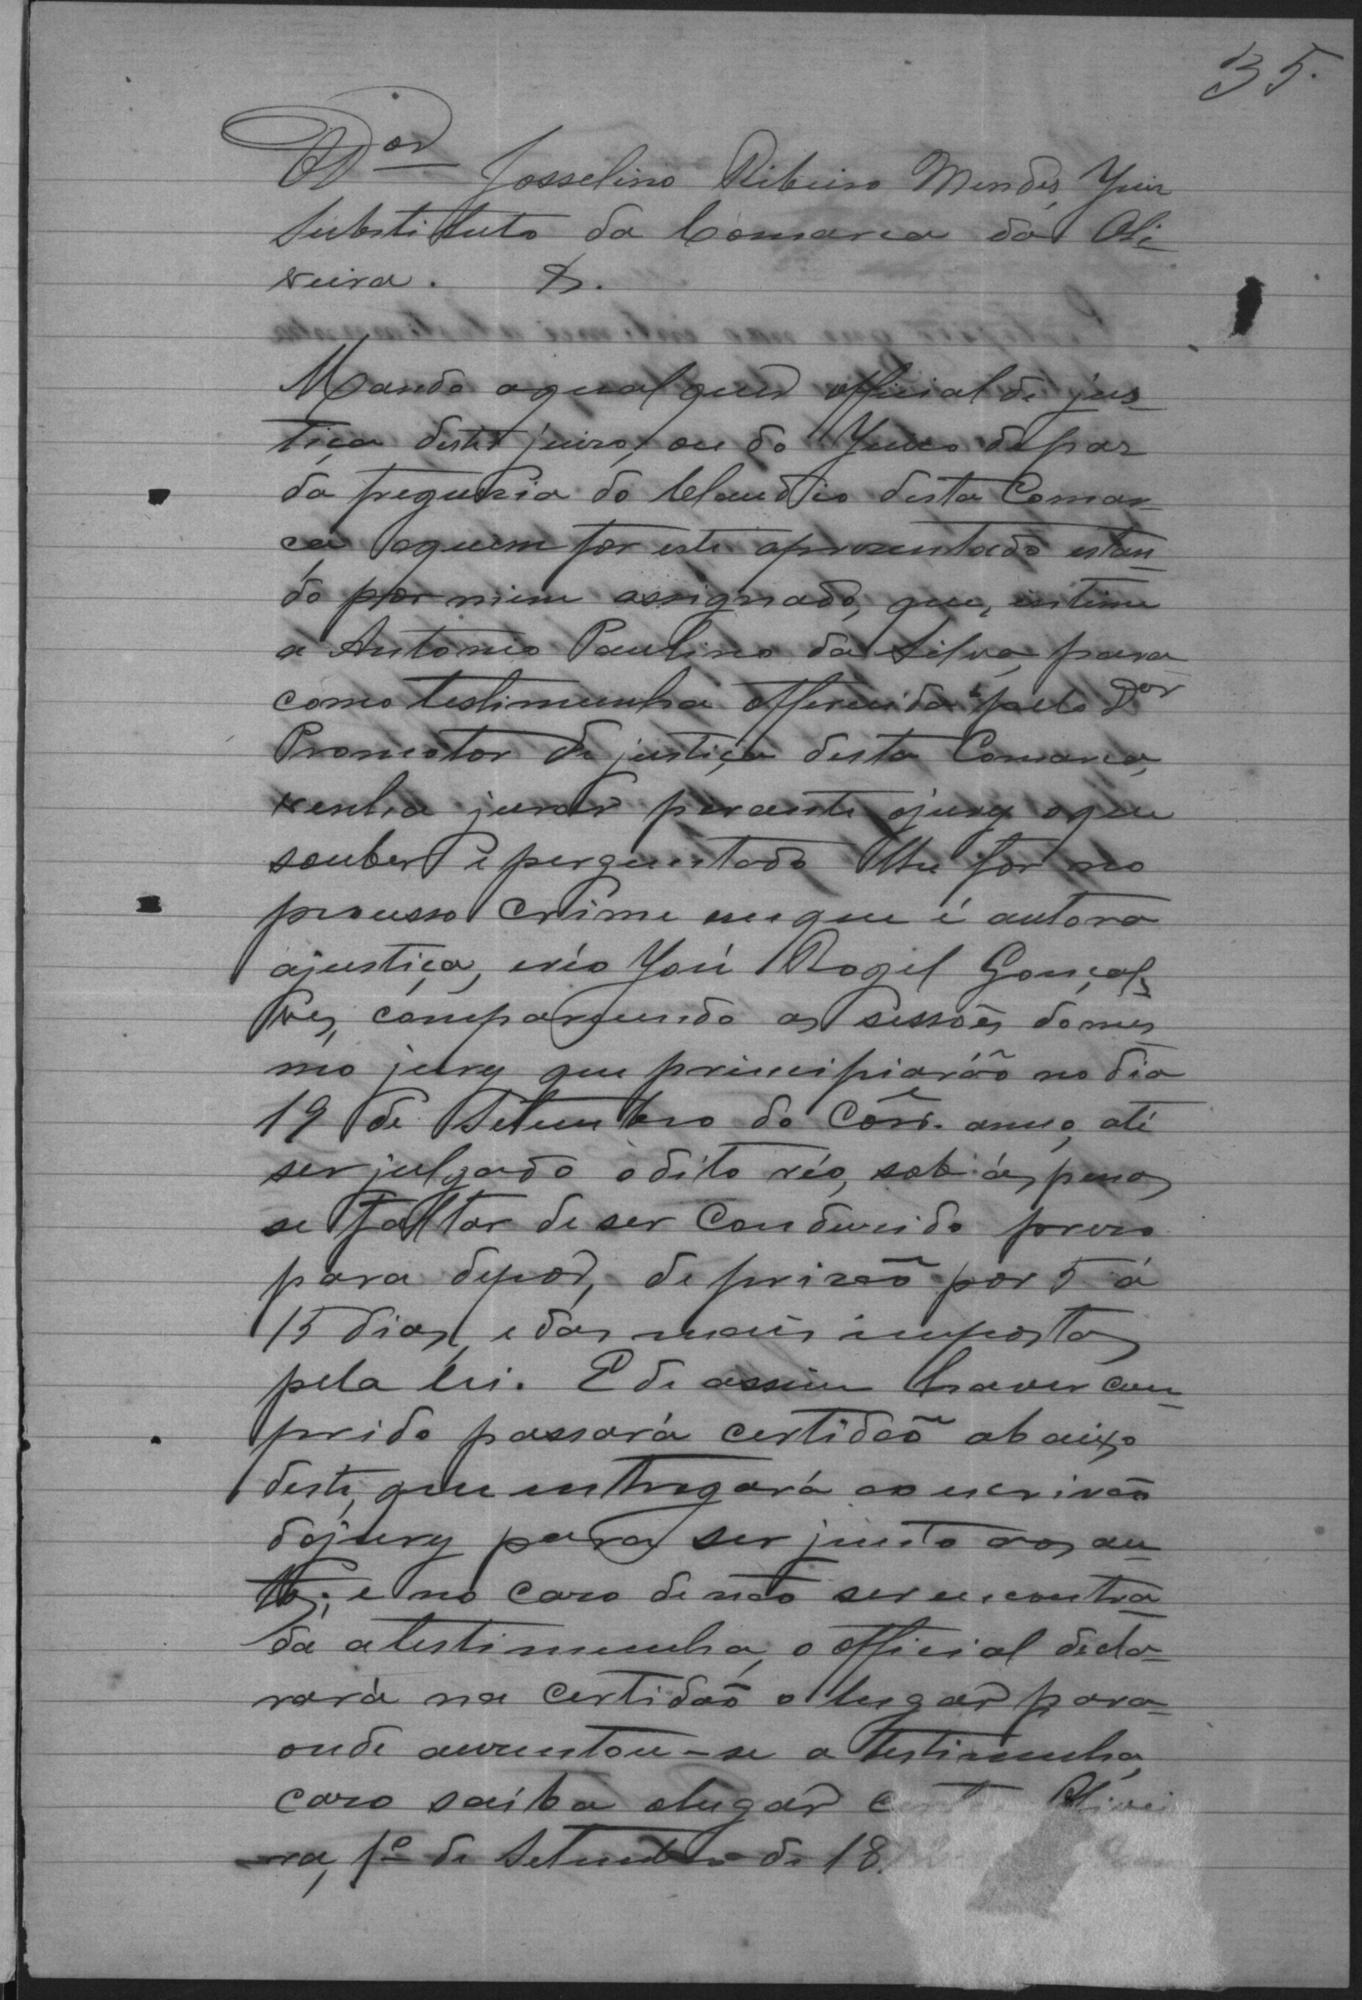 35.
O Dor Josselino Ribeiro Mendes, Juiz
Substituto da Comarca da Oli-
veira. &.
Mando a qualquer official de jus-
tiça deste juizo, ou do Juizo de paz
da freguezia do Claudio desta Comar-
ca, a quem for este aprezentado estan-
do por mim assignado, que, intime
a Antonio Paulino da Silva, para
como testimunha offerecida pelo Dor
Promotor de justiça desta Comarca,
venha jurar perante o jury o que
souber e perguntado lhe for no
processo crime em que é autora
a justiça, e réo José Rogel Gonçal-
ves, comparecendo as sessões do mes-
mo jury que principiarão no dia
19 de Setembro do corr. anno, até
ser julgado o dito réo, sob ás penas
se faltar de ser conduzido prezo
para depor, de prizão por 5 á
15 dias, e das mais impostas
pela lei. E de assim haver cum-
prido passará certidão abaixo
deste, que entregará ao escrivão
do jury para ser junto aos au-
tos; e no cazo de não ser encontra-
da a testimunha, o official decla-
rará na certidão o lugar para
onde auzentou-se a testimunha,
cazo saiba o lugar certo. Olivei
ra, 1º de Setembro de 18